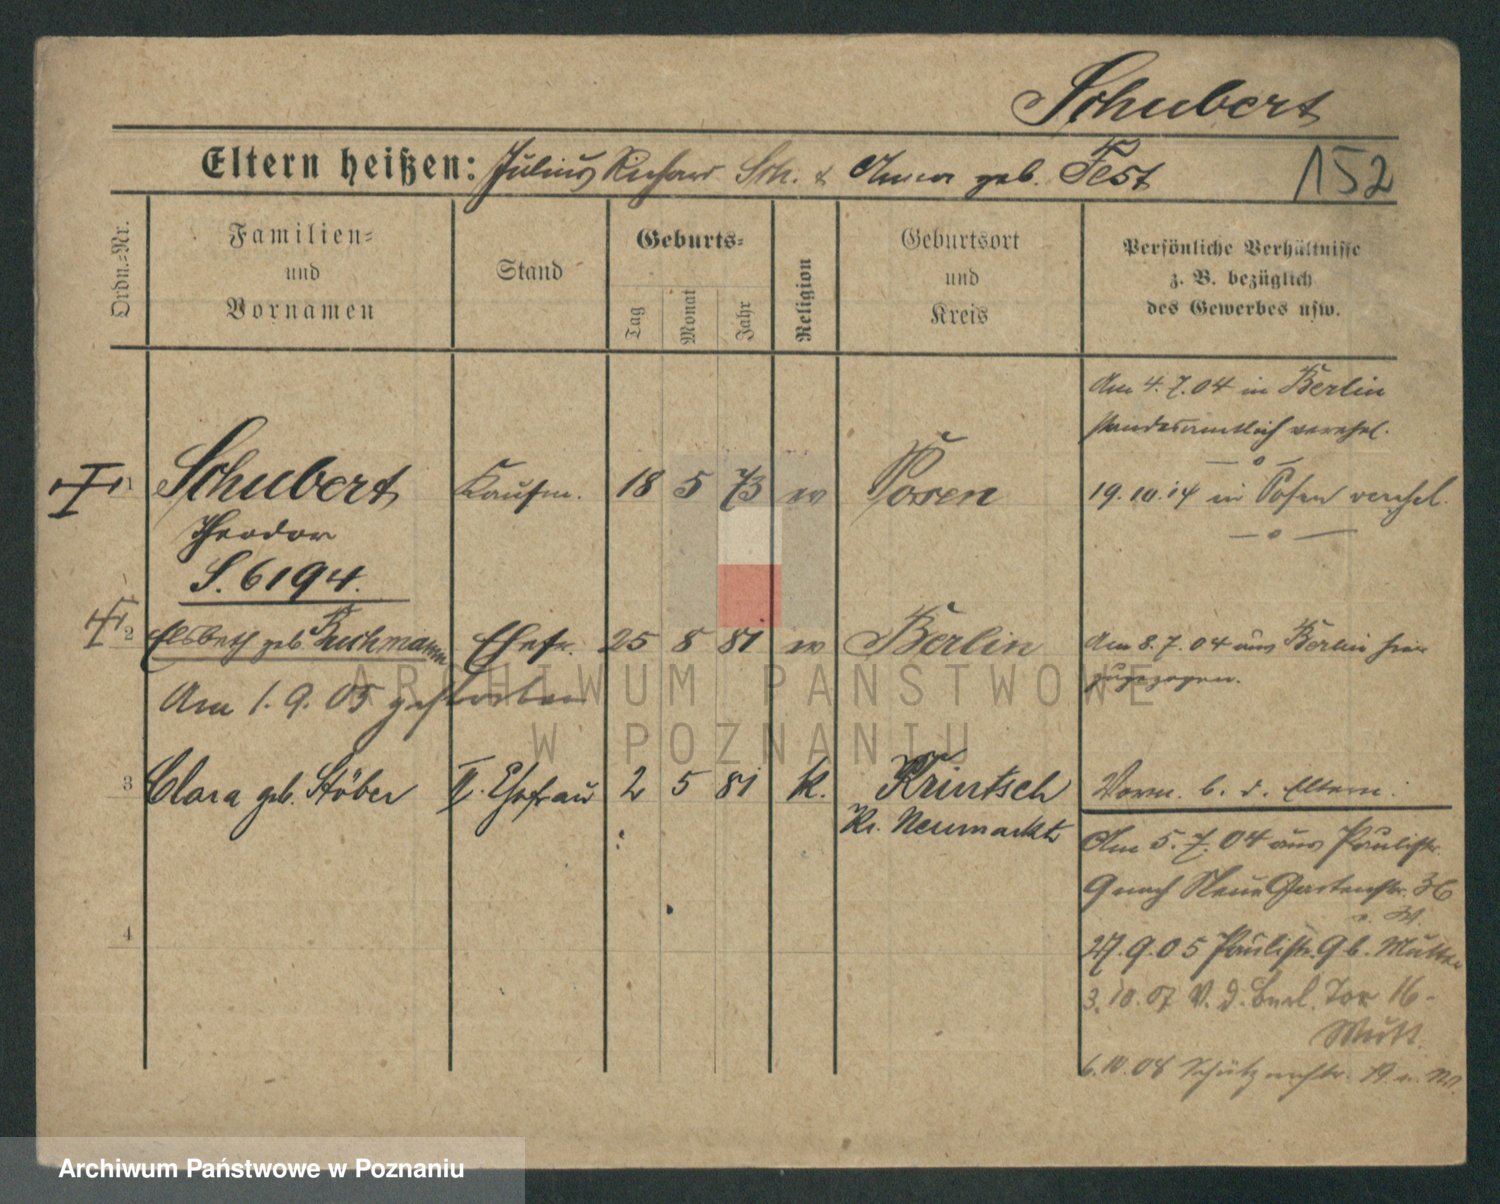 Schubert
Eltern heißen: Julius Richard Sch. & Anna geb. Fest
152
Ordn.-Nr.
Familien-
und
Vornamen
Stand
Geburts-
Tag
Monat
Jahr
Religion
Geburtsort
und
Kreis
Persönliche Verhältnisse
z. B. bezüglich
des Gewerbes usw.
Am 4.7.04 in Berlin
standesamtlich verehel.
1 Schubert Kaufm. 18 5 73 ev Posen
19.10.14 in Posen verehel.
Theodor
S. 6194.
2 Elsbeth geb. Buchmann Ehefr. 25 8 81 ev Berlin
Am 8.7.04 aus Berlin hier
zugezogen.
Am 1.9.05 gestorben
3 Clara geb. Stöber II. Ehefrau 2 5 81 k. Krintsch
Kr. Neumarkt
Vorm. b. d. Eltern.
Am 5.7.04 aus Paulistr.
9 nach Neue Gartenstr. 36
27.9.05 Paulistr. 9 b. Mutter
3.10.07 V. d. Berl. Tor 16
Mutt.
4
6.10.08 Schützenstr. 19
ARCHIWUM PAŃSTWOWE
W POZNANIU
Archiwum Państwowe w Poznaniu